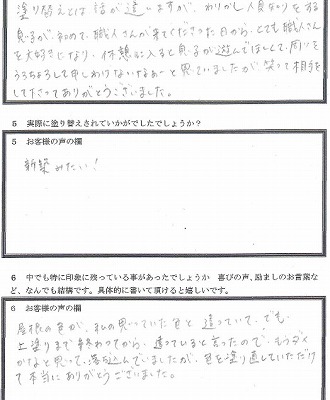 塗り替えとは話が違いますが、わりかし人見知りをする
息子が、初めて、職人さんが来てくださった日から、とても職人さん
を大好きになり、休憩に入ると息子が遊んでほしくて、周りを
うろちょろして申しわけないなぁーと思っていましたが笑って相手を
して下さってありがとうございました。
5 実際に塗り替えされていかがでしたでしょうか？
5 お客様の声の欄
新築みたい！
6 中でも特に印象に残っている事があったでしょうか 喜びの声、励ましのお言葉な
ど、なんでも結構です。具体的に書いて頂けると嬉しいです。
6 お客様の声の欄
屋根の色が、私の思っていた色と違っていて、でも、
上塗りまで終わってから、違っていると言ったので、もうダメ
かなと思って、落ち込んでましたが、色を塗り直していただけ
て本当にありがとうございました。